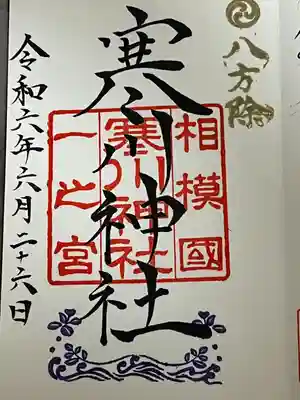 八方除
相模國
寒川神社
一之宮
寒川神社
令和六年六月二十六日